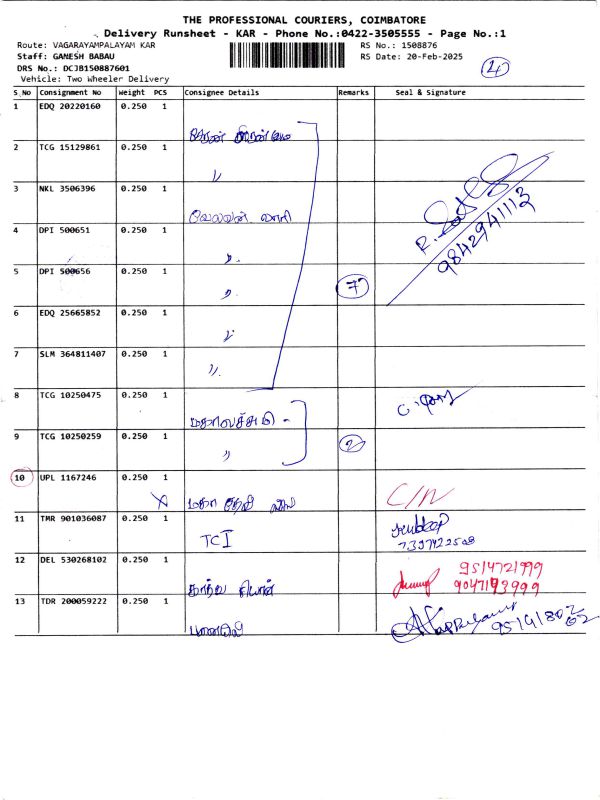 THE PROFESSIONAL COURIERS, COIMBATORE
Delivery Runsheet - KAR - Phone No.:0422-3505555 - Page No.:1
Route: VAGARAYAMPALAYAM KAR RS No.: 1508876
Staff: GANESH BABAU RS Date: 20-Feb-2025
DRS No.: DCJB150887601
Vehicle: Two Wheeler Delivery
S No Consignment No Weight PCS Consignee Details Remarks Seal & Signature
1 EDQ 20220160 0.250 1
2 TCG 15129861 0.250 1
〃
3 NKL 3506396 0.250 1
வேலவன் லாரி
4 DPI 500651 0.250 1
〃
5 DPI 500656 0.250 1
〃 7
6 EDQ 25665852 0.250 1
〃
7 SLM 364811407 0.250 1
〃
9842941113
8 TCG 10250475 0.250 1
மகாலட்சுமி -
9 TCG 10250259 0.250 1
〃 2
10 UPL 1167246 0.250 1
X மகா C/N
11 TMR 901036087 0.250 1
TCI
12 DEL 530268102 0.250 1
9514721999
9047193999
13 TDR 200059222 0.250 1